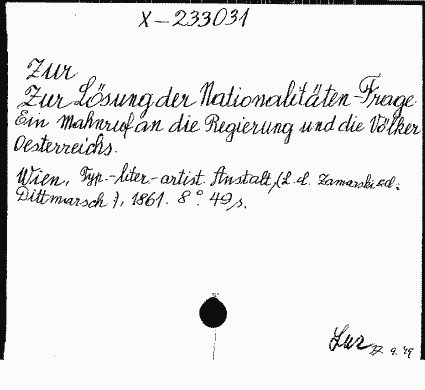 X-233031
Zur
Zur Lösung der Nationalitäten-Frage.
Ein Mahnruf an die Regierung und die Völker
Oesterreichs.
Wien, Typ.-liter.-artist. Anstalt (L. C. Zamarski &
Dittmarsch), 1861. 8° 49 s.
27. 9. 49